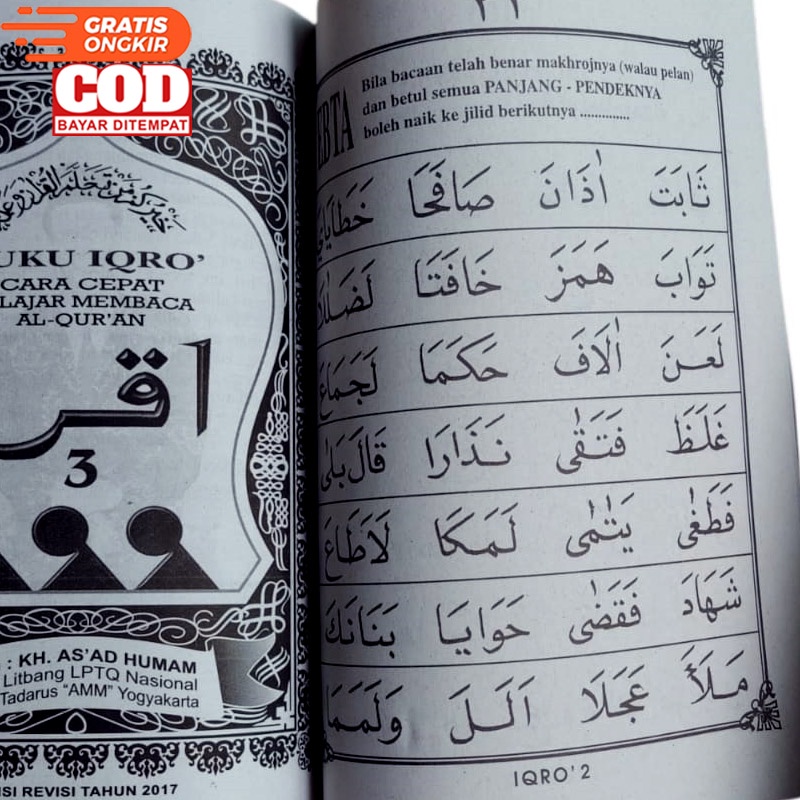 GRATIS
ONGKIR
COD
BAYAR DITEMPAT
UKU IQRO'
CARA CEPAT
LAJAR MEMBACA
AL-QUR'AN
3
: KH. AS'AD HUMAM
Litbang LPTQ Nasional
Tadarus "AMM" Yogyakarta
SI REVISI TAHUN 2017
EBTA
Bila bacaan telah benar makhrojnya (walau pelan)
dan betul semua PANJANG - PENDEKNYA
boleh naik ke jilid berikutnya ..............
ثَابَتَ اٰذَانَ صَافَحَا
تَوَابَ هَمَزَ خَافَتَا
لَعَنَ اٰلَافَ حَكَمَا
غَلَظَ فَتَقٰى نَذَارَا قَالَ بَلٰى
فَطَغٰى يَتٰمٰى لَمَكَا لَاطَاعَ
شَهَادَ فَقَضٰى حَوَايَا بَنَانَكَ
مَلَأَ عَجَلَا اَلَلَ وَلَمَمَا
IQRO' 2